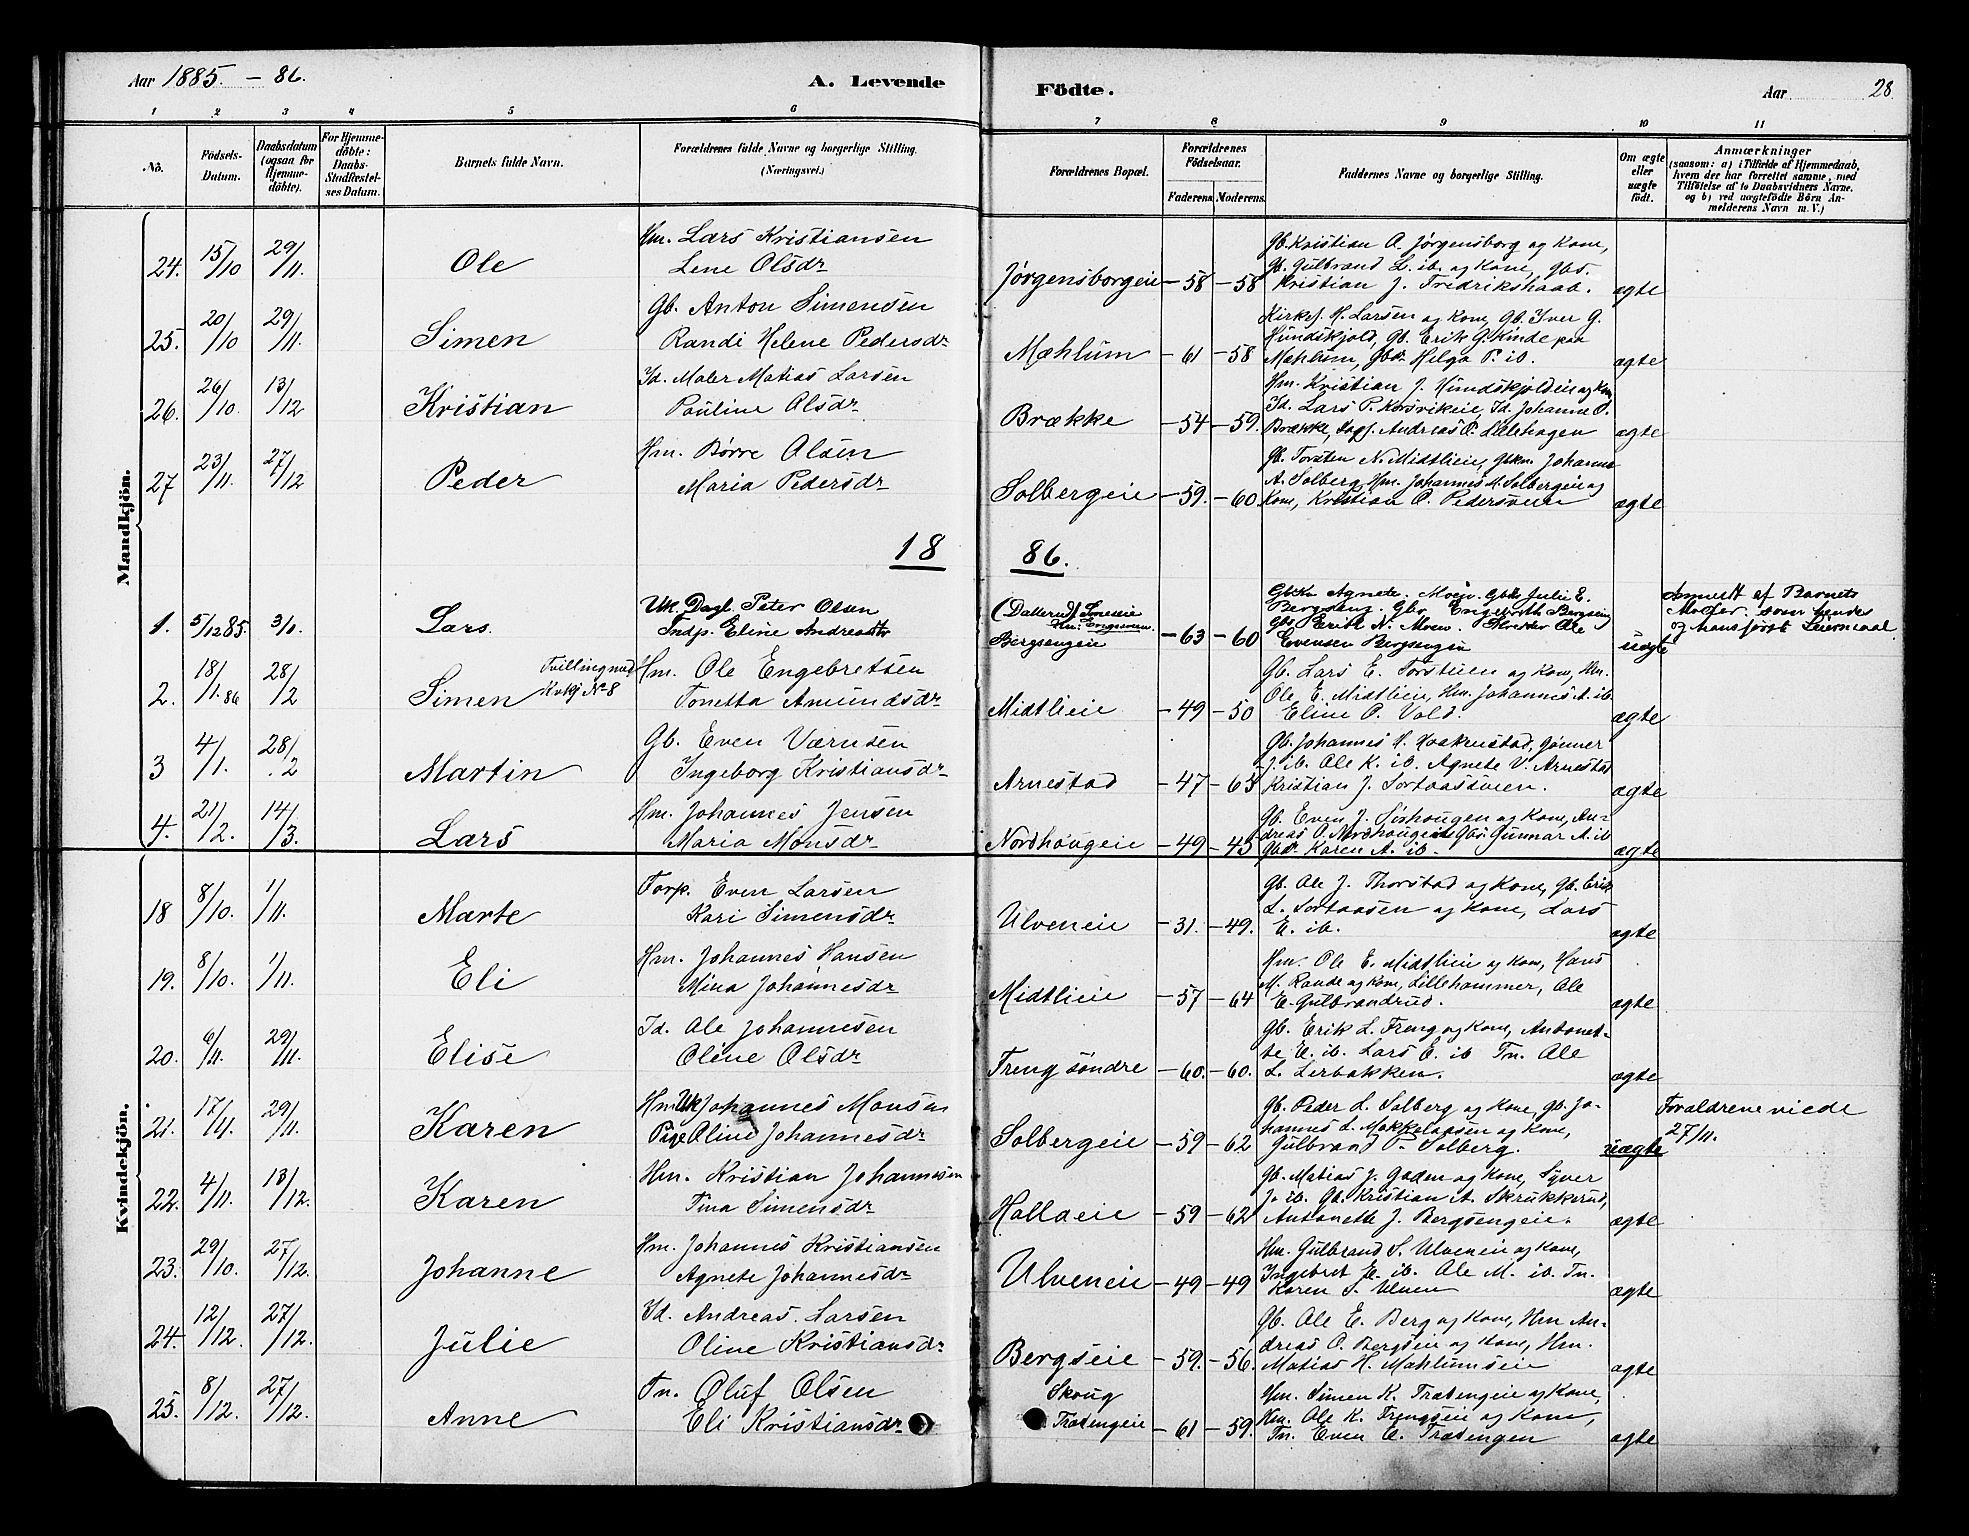 Aar 1885. - 86.
A. Levende
Födte.
Aar
28
1 2 3 4 5 6 7 8 9 10 11
No.
Födsels-Datum.
Daabsdatum (ogsaa for Hjemme-döbte).
For Hjemme-döbte: Daabs-Stadfæstelses Datum.
Barnets fulde Navn.
Forældrenes fulde Navne og borgerlige Stilling. (Næringsvei.)
Forældrenes Bopæl.
Forældrenes Födselsaar.
Faderens. Moderens.
Faddernes Navne og borgerlige Stilling.
Om ægte eller uægte födt.
Anmærkninger
(saasom: a) i Tilfælde af Hjemmedaab, hvem der har forrettet samme, med Tilföielse af to Daabsvidners Navne, og b) ved uægtefödte Börn Anmelderens Navn m. V.)
Mandkjön.
24. 15/10 29/11. Ole Hm. Lars Kristiansen
Lene Olsdr Jørgensborgeie - 58 - 58
Gb. Kristian O. Jørgensborg og Kone,
Gb. Gulbrand L. ib. og Kone, gbs.
Kristian J. Fredrikshaab. ægte
25. 20/10 29/11. Simen Gb. Anton Simensen
Randi Helene Pedersdr Mæhlum - 61 - 58
Kirkes. H. Larsen og Kone, Gb. Iver G.
Hundskjold, Gb. Erik G. Kinde paa
Mæhlum, Gbd. Helga P. ib. ægte
26. 26/10. 13/12 Kristian Id. Maler Matias Larsen
Pauline Olsdr Brække - 54 - 59.
Hm. Kristian J. Hundskjoldeie og Kone,
Id. Lars P. Korsvikeie, Id. Johanne O.
Brække, Andreas O. Lillehagen ægte
27 23/11. 27/12 Peder Hm. Børre Olsen
Maria Pedersdr Solbergeie - 59. - 60
Gb. Torsten N. Midtlieie, Gbkn. Johanna
A. Solberg, Hm. Johannes M. Solbergeie og
Kone, Kristian O. Pedersveen ægte
18 86.
1. 5/12 85. 3/1. Lars. Uk. Dagl. Peter Olsen
Indp. Eline Andreasdtr
(Dallerud) Smeseie
Hm. Engesveen.
Bergsengeie - 63 - 60
Gbkn Agnete. Moen. Gbk Julie E.
Bergseng. Gbs Engebreth Bergseng
Gbs Erik N. Moen. Ole
Evensen Bergsengeie uægte
Anmeldt af Barnets
Moder. som hendes
og hans første Leiermaal
2. 18/1. 86 28/2 Simen Tvilling med
Kvkj No 8 Hm. Ole Engebretsen
Tonetta Amundsdr Midtlieie - 49 - 50
Gb. Lars E. Torstuen og Kone, Hm.
Ole E. Midtlieie, Hm. Johannes A. ib
Eline P. Vold. ægte
3 4/1. 28/2 Martin Gb. Even Værnsen
Ingeborg Kristiansdr Arnestad - 47 - 63
Gb. Johannes H. Haakenstad, Gunner
J. ib. Ole K. ib. Agnete V. Arnestad
Kristian J. Sortaasveien. ægte
4. 21/2. 14/3. Lars Hm. Johannes Jensen
Maria Monsdr Nordhougeie - 49 - 45
Gb. Even J. Sørhougen og Kone, An-
dreas O. Nordhougeie Gbs. Gunnar A. ib
Gbd. Karen A. ib. ægte
Kvindekjön.
18 8/10. 1/11. Marte Torp. Even Larsen
Kari Simensdr Ulveneie - 31. - 49.
Gb. Ole J. Thorstad og Kone, Gb. Erik
L. Sortaasen og Kone, Lars
E. ib. ægte
19. 8/10. 1/11. Eli Hm. Johannes Hansen
Mina Johannesdr Midtlieie - 57 - 64
Hm. Ole E. Midtlieie og Kone, Hans
M. Rande og Kone, Lillehammer, Ole
E. Gulbrandrud. ægte
20. 6/11. 29/11. Elise Id. Ole Johannesen
Oline Olsdr Freng søndre - 60. - 60.
Gb. Erik L. Freng og Kone, Antonet-
te E. ib. Lars E. ib Tn. Ole
L. Lerbakken. ægte
21. 17/4. 29/11. Karen Hm Uk Johannes Monsen
Pige Oline Johannesdr Solbergeie - 59 - 62
Gb. Peder L. Solberg og Kone, Gb. Jo-
hannes L. Mokkelaasen og Kone,
Gulbrand P. Solberg. uægte
Forældrene viede
27/11.
22. 4/11. 13/12. Karen Hm. Kristian Johannesen
Tina Simensdr Hallaeie - 59 - 62
Gb. Matias J. Goden og Kone, Syver
J. ib. Gb. Kristian A. Skrukkerud,
Antonette J. Bergsengeie. ægte
23. 29/10. 27/12. Johanne Hm. Johannes Kristiansen
Agnete Johannesdr Ulveneie - 49 - 49
Hm. Gulbrand S. Ulveneie og Kone,
Ingebret E. ib. Ole M. ib. Tn.
Karen S. Ulven ægte
24. 12/12. 27/12. Julie Id. Andreas Larsen
Oline Kristiansdr Bergseie - 59. - 56.
Gb. Ole E. Berg og Kone, Hm An-
dreas O. Bergseie og Kone, Hm.
Matias H. Mæhlumseie ægte
25. 8/12. 27/12. Anne Tn. Oluf Olsen
Eli Kristiansdr Skoug
Trætengeie - 61 - 59.
Hm. Simen K. Trætengeie og Kone,
Hm. Ole K. Frengseie og Kone,
Tn. Even E. Trætengen ægte